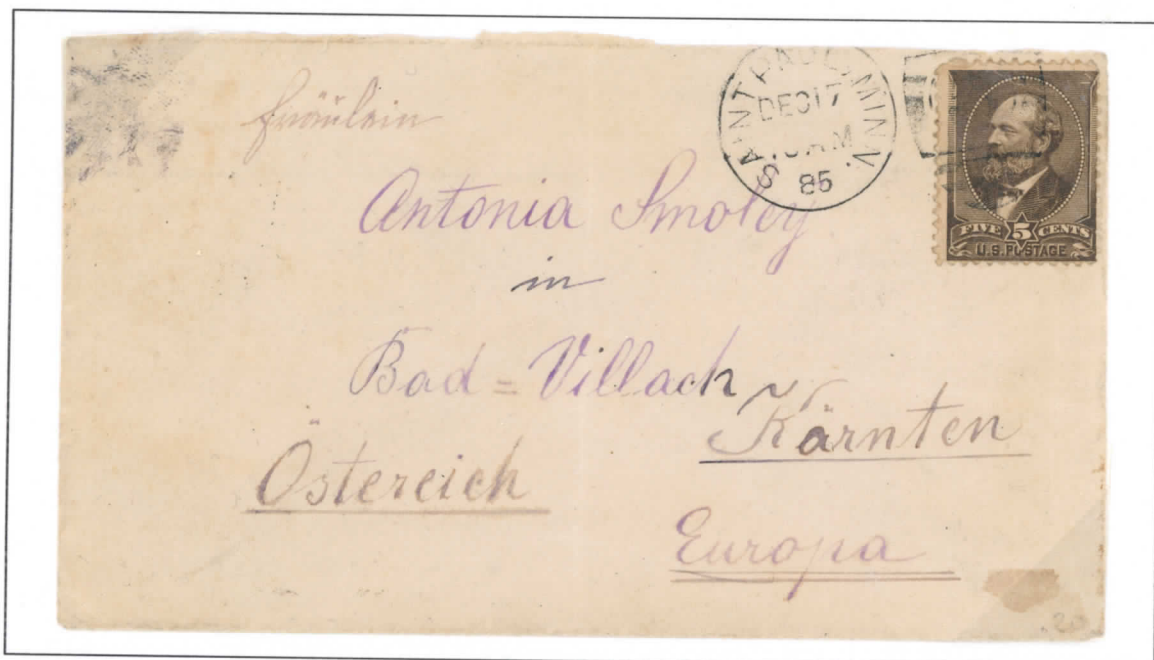 Fräulein
Antonia Smoley
in
Bad=Villach
Kärnten
Östereich
Europa
SAINT PAUL, MINN.
DEC 17
10 AM
85
FIVE 5 CENTS
U.S. POSTAGE
20